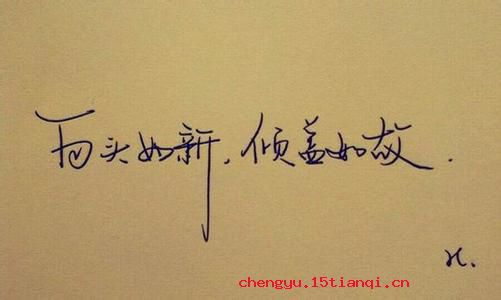 百头如新，倾盖如故．
x.
chengyu.15tianqi.cn